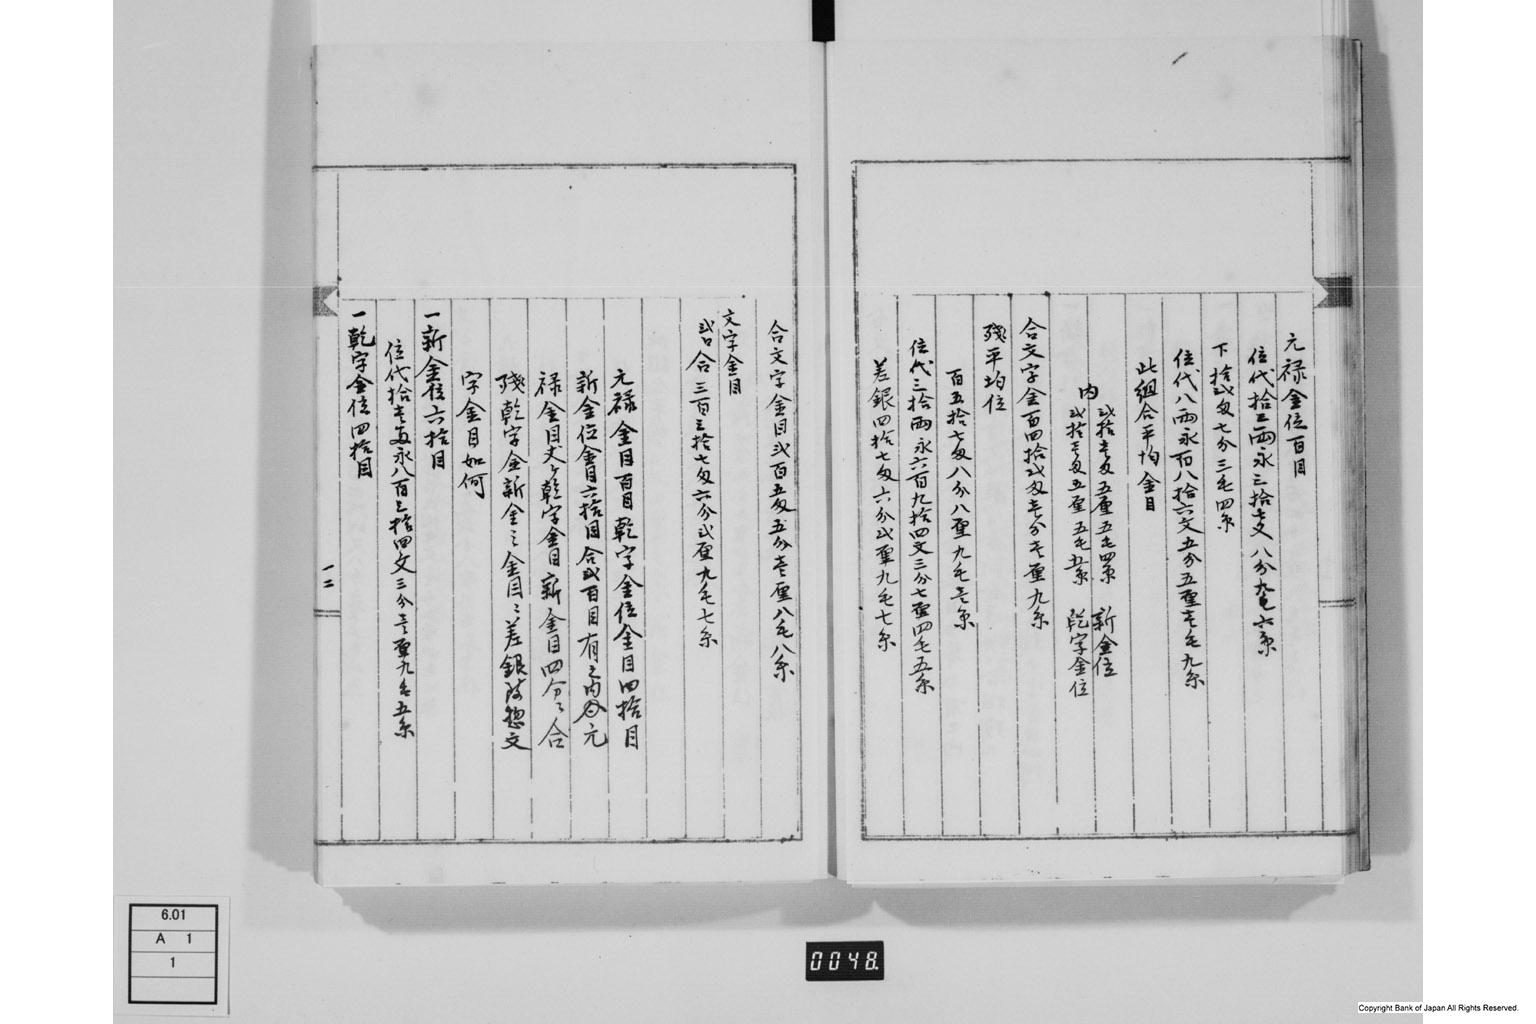 元禄金位百目
位代拾三両永三拾七文八分九毛六糸
下拾弐匁七分三毛四糸
位代八両永百八拾六文五分五厘壱毛九糸
此組合平均金目
内
弐拾壱匁五厘五毛四糸 新金位
弐拾壱匁五厘五毛五糸 乾字金位
合文字金百四拾弐匁壱分壱厘九糸
残平均位
百五拾七匁八分八厘九毛壱糸
位代三拾両永六百九拾四文三分七厘四毛五糸
差銀四拾七匁六分弐厘九毛七糸
合文字金目弐百五匁五分壱厘八毛八糸
文字金目
弐口合三百三拾七匁六分弐厘九毛七糸
元禄金目百目乾字金位金目四拾目
新金位金目六拾目合弐百目有之内元
禄金目丈ヶ乾字金目新金目四分ニ合
残乾字金新金之金目ニ差銀除惣文
字金目如何
一新金位六拾目
位代拾壱両永八百三拾四文三分壱厘九毛五糸
一乾字金位四拾目
一二
6.01
A 1
1
0048.
Copyright Bank of Japan All Rights Reserved.